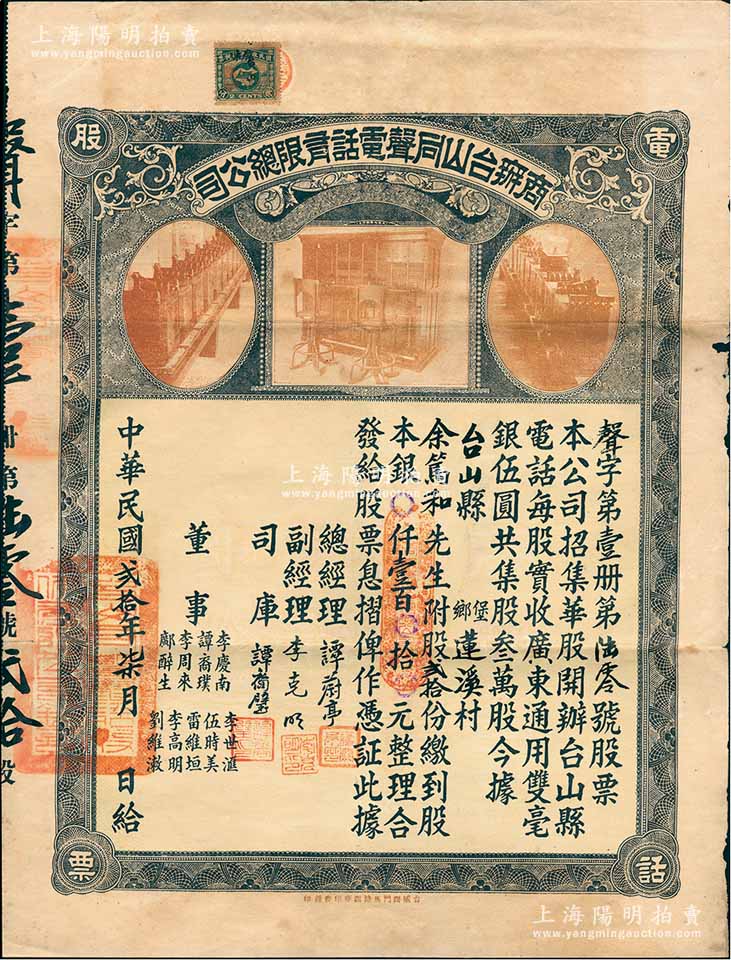 上海陽明拍賣
www.yangmingauction.com
電
話
股
票
商辦台山同聲電話有限總公司
聲字第壹册第陆零號股票
本公司招集華股開辦台山縣
電話每股實收廣東通用雙毫
銀伍圓共集股叁萬股今據
台山縣 堡鄉 蓮溪村
余篤和先生附股貳拾份繳到股
本銀〇仟壹百〇拾〇元整理合
發給股票息摺俾作憑証此據
總經理 譚蔚亭
副經理 李克明
司庫 譚蘅璧
董事
李慶南 李世滙
譚裔璞 伍時美
李周來 雷維垣
鄺酔生 李高明
劉維漖
中華民國貳拾年柒月 日給
字第壹册第陆零號貳拾股
上海陽明拍賣
www.yangmingauction.com
上海陽明拍賣
www.yangmingauction.com